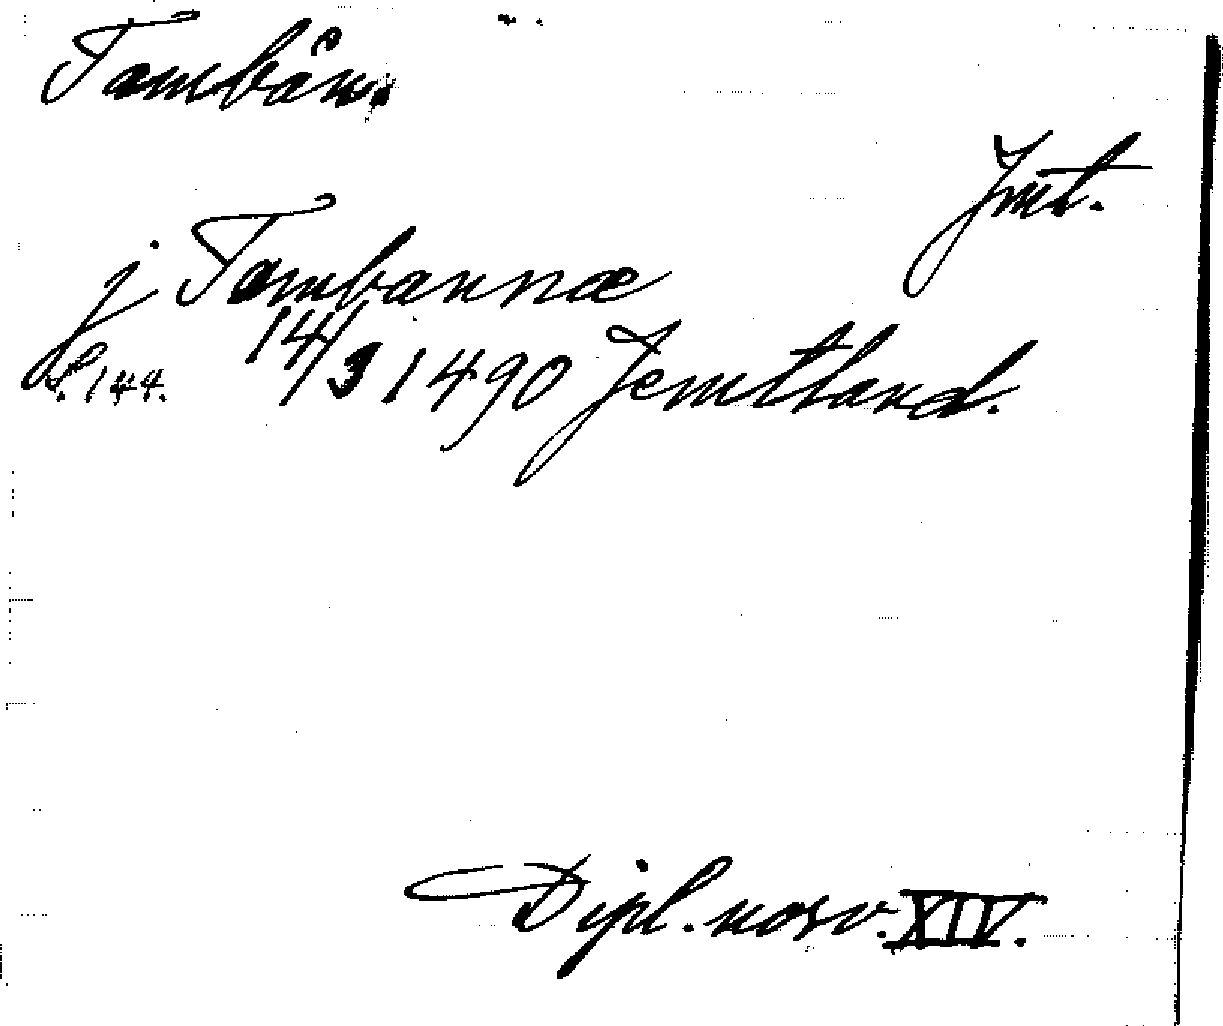 Tambån.
Jmt.
j Tambannæ
s. 144. 14/3 1490 Jemtland.
Dipl. norv. XIV.